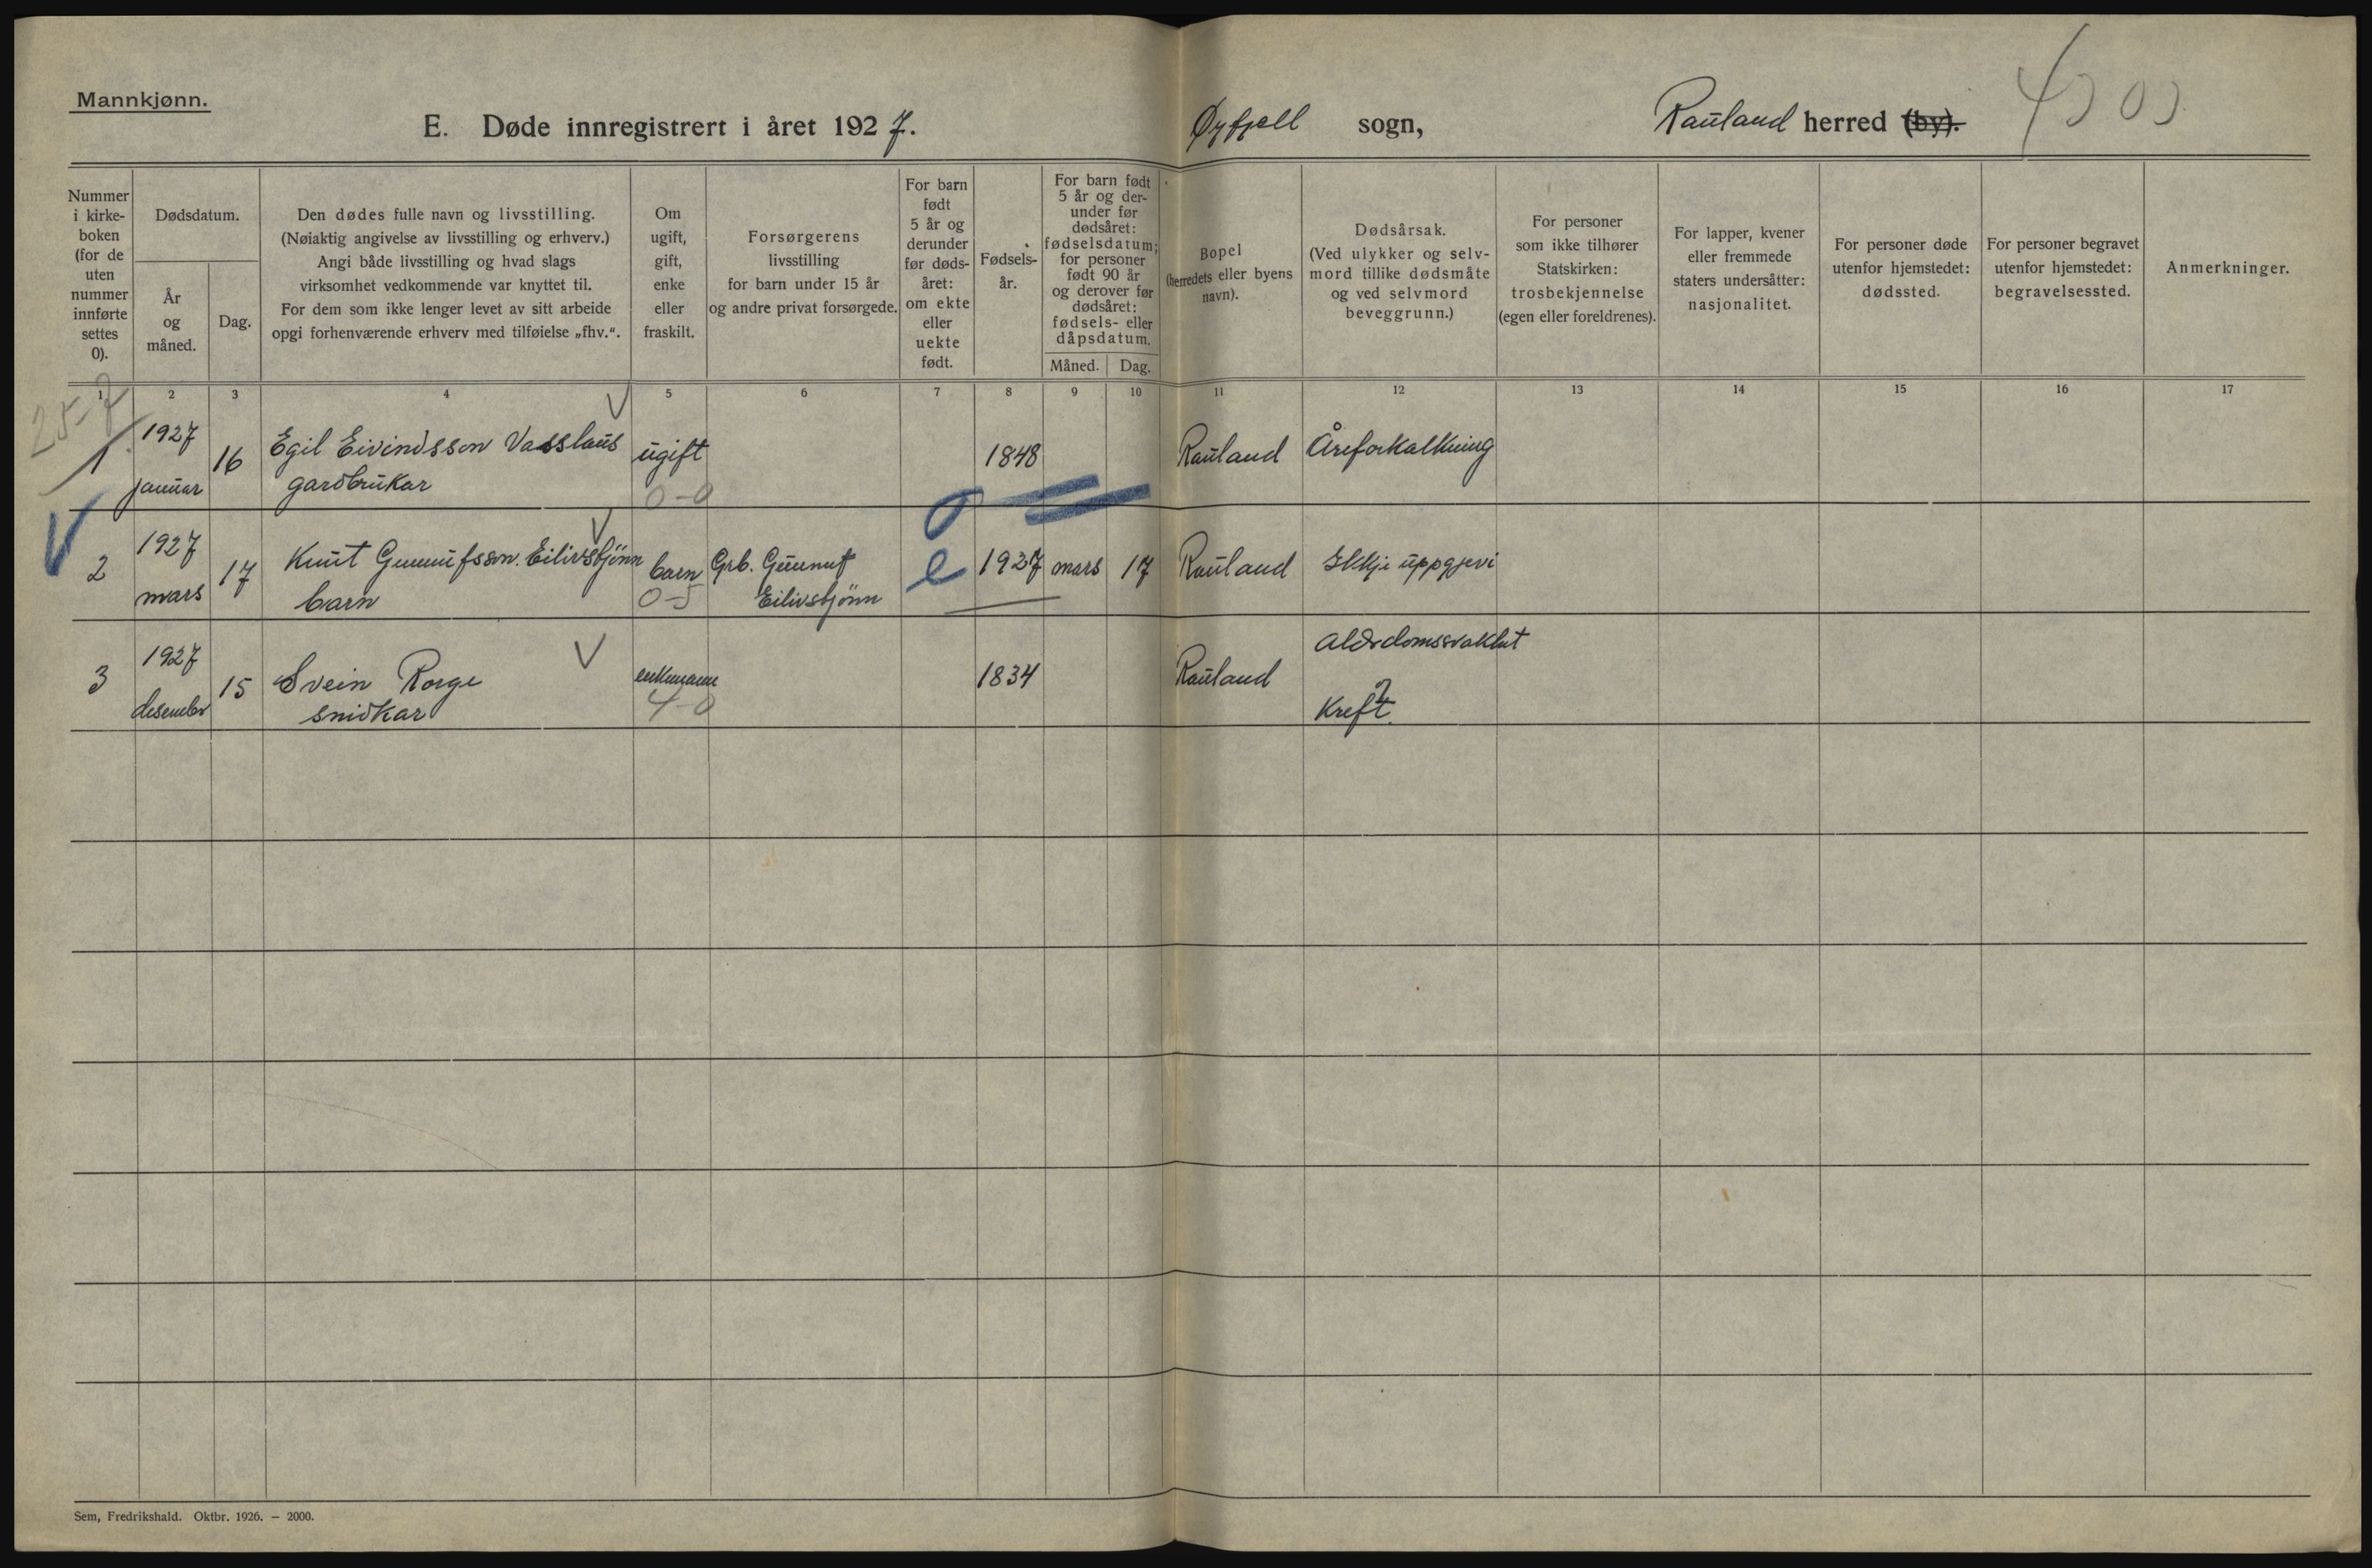 Mannkjønn.
E. Døde innregistrert i året 1927.
Øyfjell sogn, Rauland herred (by).
Nummer i kirke-boken (for de uten nummer innførte settes 0).
Dødsdatum.
År og måned.
Dag.
Den dødes fulle navn og livsstilling.
(Nøiaktig angivelse av livsstilling og erhverv.)
Angi både livsstilling og hvad slags
virksomhet vedkommende var knyttet til.
For dem som ikke lenger levet av sitt arbeide
opgi forhenværende erhverv med tilføielse „fhv.“.
Om ugift, gift, enke eller fraskilt.
Forsørgerens
livsstilling
for barn under 15 år
og andre privat forsørgede.
For barn født 5 år og derunder før døds-året: om ekte eller uekte født.
Fødsels-år.
For barn født 5 år og der-under før dødsåret: fødselsdatum; for personer født 90 år og derover før dødsåret: fødsels- eller dåpsdatum.
Måned.
Dag.
Bopel
(herredets eller byens
navn).
Dødsårsak.
(Ved ulykker og selv-
mord tillike dødsmåte
og ved selvmord
beveggrunn.)
For personer
som ikke tilhører
Statskirken:
trosbekjennelse
(egen eller foreldrenes).
For lapper, kvener
eller fremmede
staters undersåtter:
nasjonalitet.
For personer døde
utenfor hjemstedet:
dødssted.
For personer begravet
utenfor hjemstedet:
begravelsessted.
Anmerkninger.
1 2 3 4 5 6 7 8 9 10 11 12 13 14 15 16 17
25-7
1 1927 januar 16 Egil Eivindsson Vasslaus gardbrukar ugift 0-0 1848 Rauland Åreforkalkning
2 1927 mars 17 Knut Gunnufsson Eilivstjönn barn barn 0-5 Grb. Gunnuf Eilivstjönn e 1927 mars 17 Rauland Ikkje uppgjevi
3 1927 desember 15 Svein Rorge snidkar enkemann 4-0 1834 Rauland Alderdomssvakhet
Kreft ?
Sem, Fredrikshald. Oktbr. 1926. — 2000.